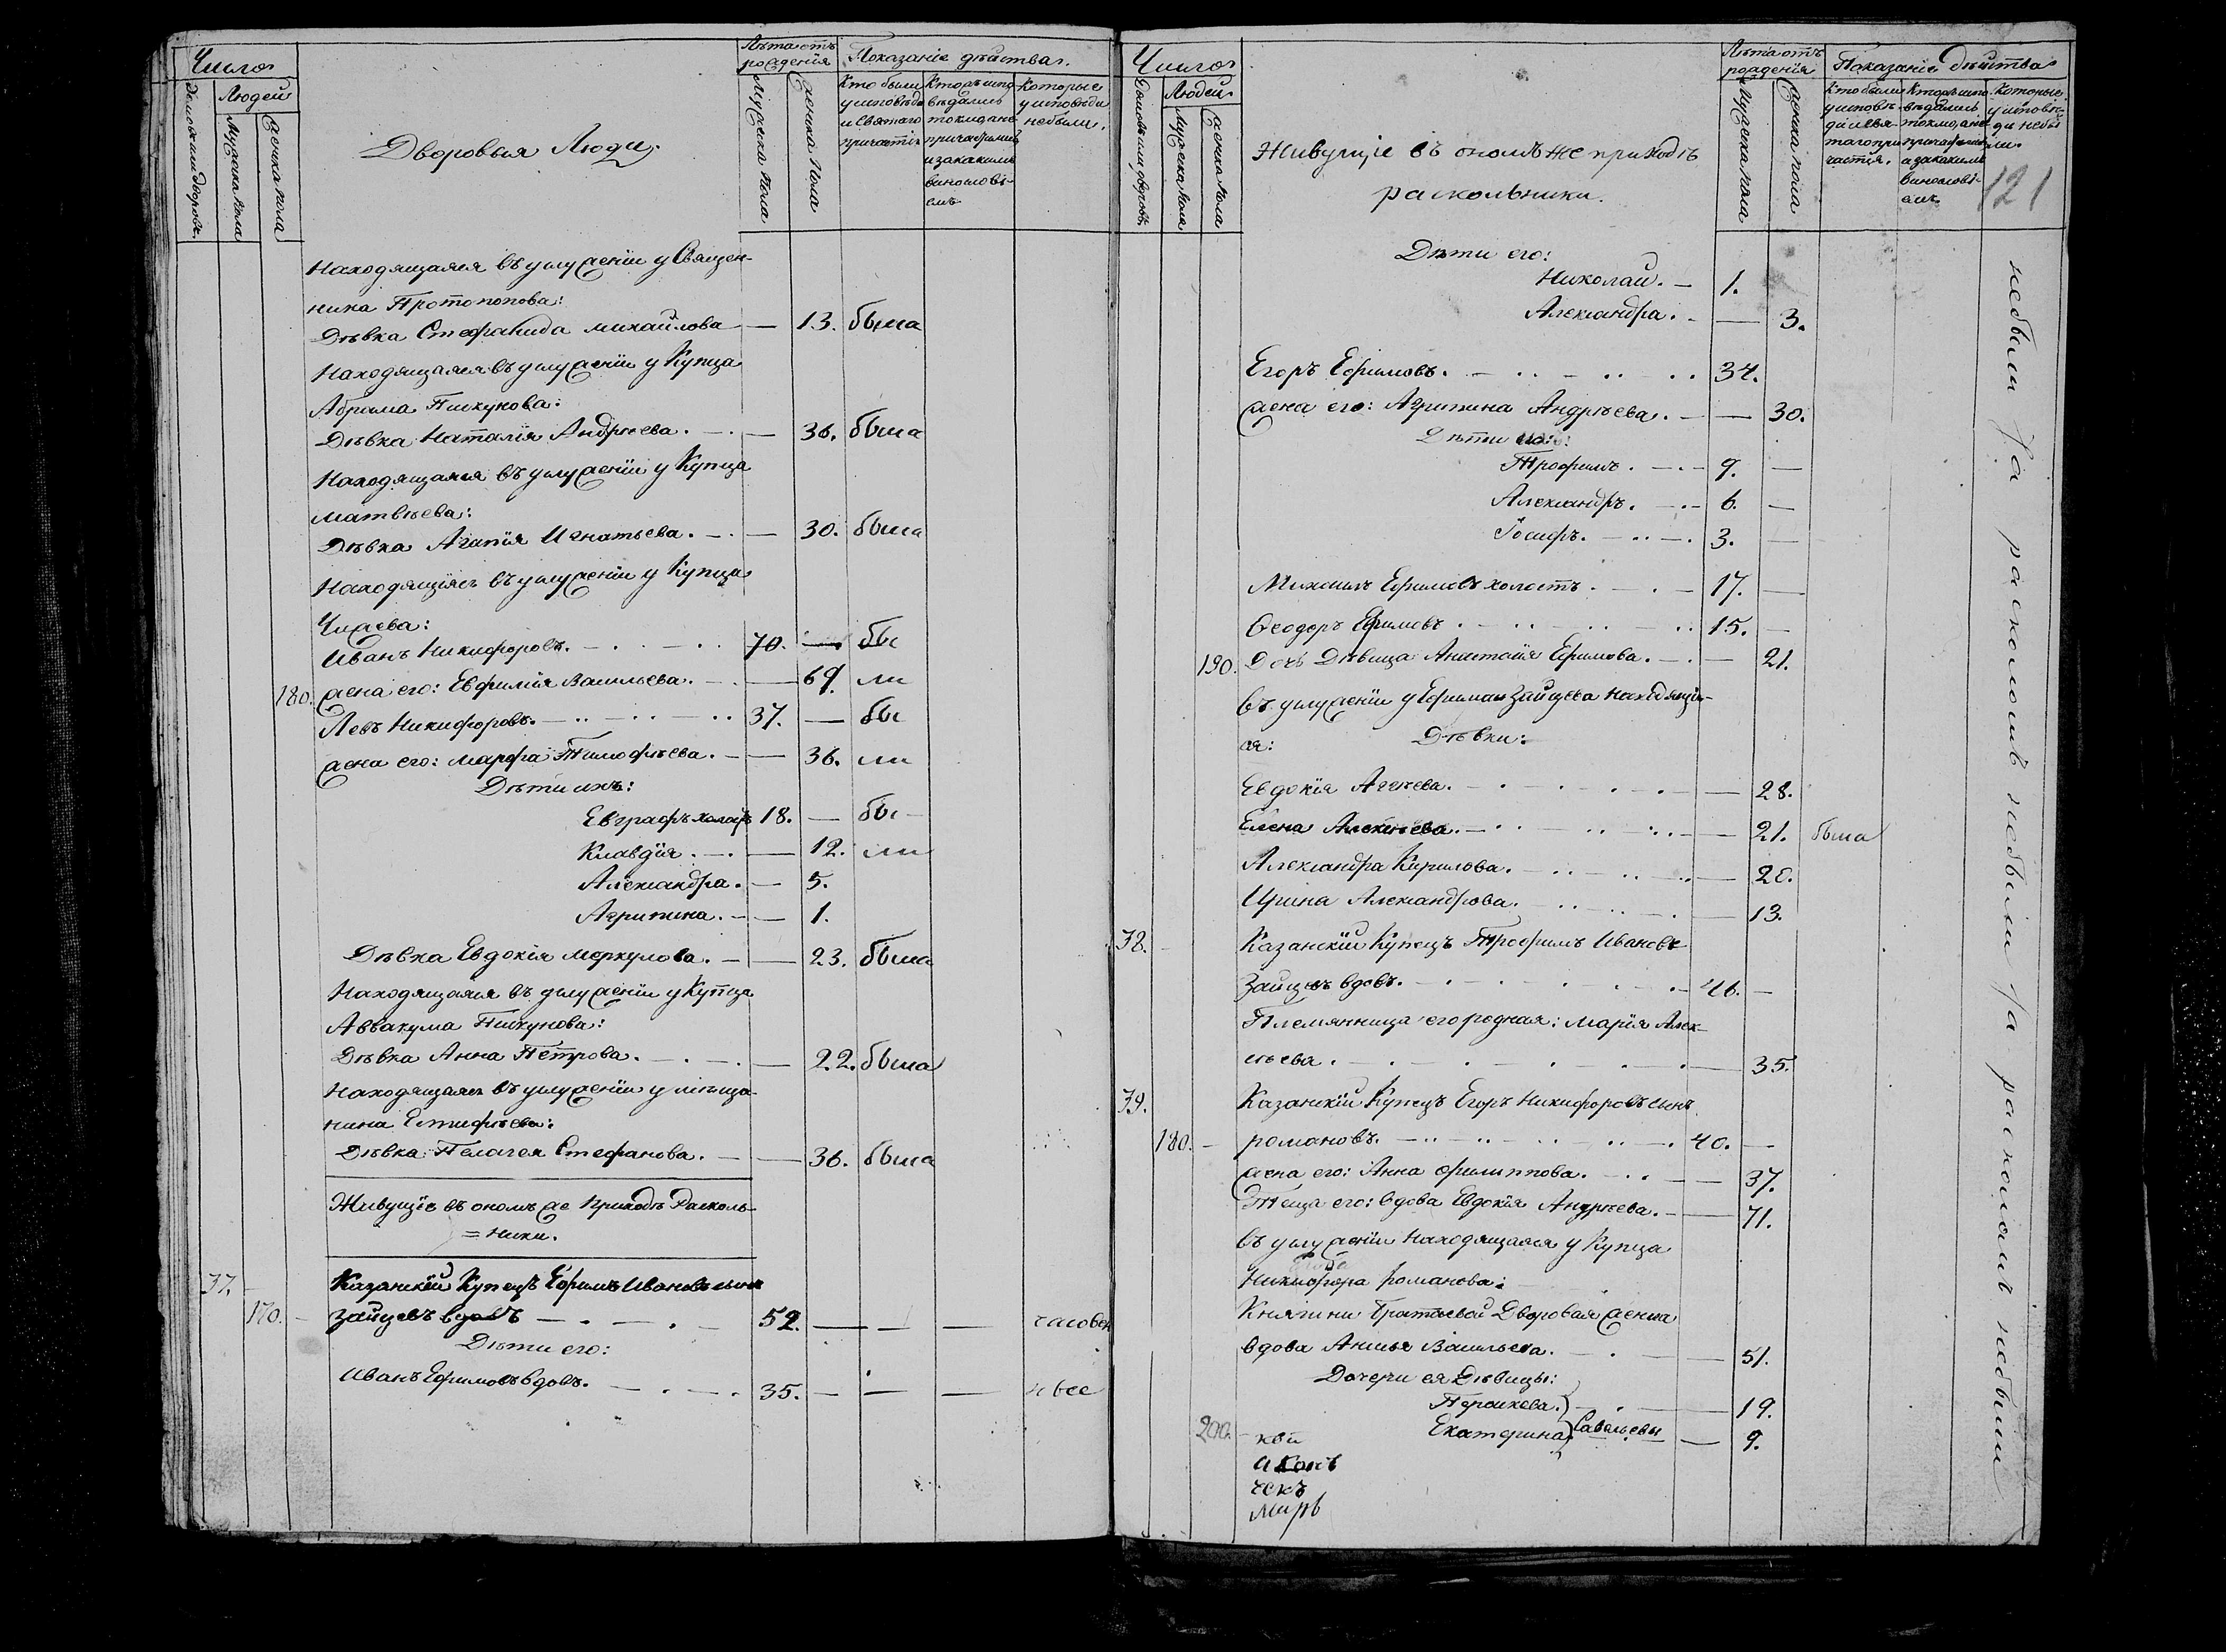 Число
Людей
Домовъ или дворовъ.
Мужеска пола
Женска пола
Дворовыя Люди.
Лѣта отъ рожденія
Мужеска пола
Женска пола
Показаніе дѣйства.
Кто были
у исповѣди
и Святаго
причастія
Кто исповѣдались
токмо, а не
причастились
и за какимъ
винословіемъ
Которые
у исповѣди
не были.
Находящаяся въ услуженіи у Священ-
ника Протопопова:
Дѣвка Стефанида Михайлова — 13. была
Находящаяся въ услуженіи у Купца
Абрама Пискунова:
Дѣвка Наталія Андреева. — 36. была
Находящаяся въ услуженіи у Купца
Матвѣева:
Дѣвка Агапія Игнатьева. — 30. была
Находящіяся въ услуженіи у Купца
Чижева:
Иванъ Никифоровъ. 70. — бы
180. жена его: Евфимія Васильева. — 69. ли
Левъ Никифоровъ. 37. — бы
жена его: Марфа Тимофѣева. — 36. ли
Дѣти ихъ:
Евграфъ холостъ 18. — бы
Клавдія. — 12. ли
Александра. — 5.
Агрипина. — 1.
Дѣвка Евдокія Меркулова. — 23. была
Находящаяся въ услуженіи у Купца
Аввакума Пискунова:
Дѣвка Анна Петрова. — 22. была
Находящаяся въ услуженіи у мѣща-
нина Естифѣева:
Дѣвка Пелагея Стефанова. — 36. была
Живущіе въ ономъ же приходѣ Расколь-
= ники.
37. Казанскій Купецъ Ефимъ Ивановъ сынъ
170. Зайцевъ вдовъ 52. — — — часовен
Дѣти его:
Иванъ Ефимовъ вдовъ. 35. — — — и все
Число
Людей.
Домовъ или дворовъ.
Мужеска пола
Женска пола
Живущіе въ ономъ же приходѣ
раскольники.
Лѣта отъ рожденія
Мужеска пола
Женска пола
Показаніе дѣйства
Кто были
у исповѣ-
ди и свя-
таго при-
частія.
Кто испо-
вѣдались
токмо, а не
причастились
а за какимъ
винослові-
емъ
Которые
у исповѣ-
ди небы
ли.
121
Дѣти его:
Николай. — 1.
Александра. — 3.
Егоръ Ефимовъ. 34.
жена его: Агрипина Андрѣева. — 30.
Дѣти его:
Трофимъ. 9. —
Александръ. 6. —
Іосифъ. 3. —
Михаилъ Ефимовъ холостъ. 17. —
Ѳеодоръ Ефимовъ. 15. —
190. Дочь Дѣвица Анастасія Ефимова. — 21.
Въ услуженіи у Ефима Зайцева находящі-
ся: Дѣвки:
Евдокія Агѣева. — 28.
Елена Алексѣева. — 21. была
Александра Кирилова. — 20.
Ирина Александрова. — 13.
38. Казанскій Купецъ Трофимъ Ивановъ
Зайцевъ вдовъ. 46. —
Племянница его родная: Марія Алек-
сѣева. — 35.
39. Казанскій Купецъ Егоръ Никифоровъ сынъ
180. романовъ. 40. —
жена его: Анна Филиппова. — 37.
Теща его: вдова Евдокія Андрѣева. — 71.
Въ услуженіи находящаяся у Купца
Никифора романова:
Княгини Дворовая женка
вдова Анисья Васильева. — 51.
Дочери ея Дѣвицы:
Параскева. — 19.
200. Екатерина Савельевы — 9.
кой
ческъ
не были за расколомъ не были за расколомъ не были